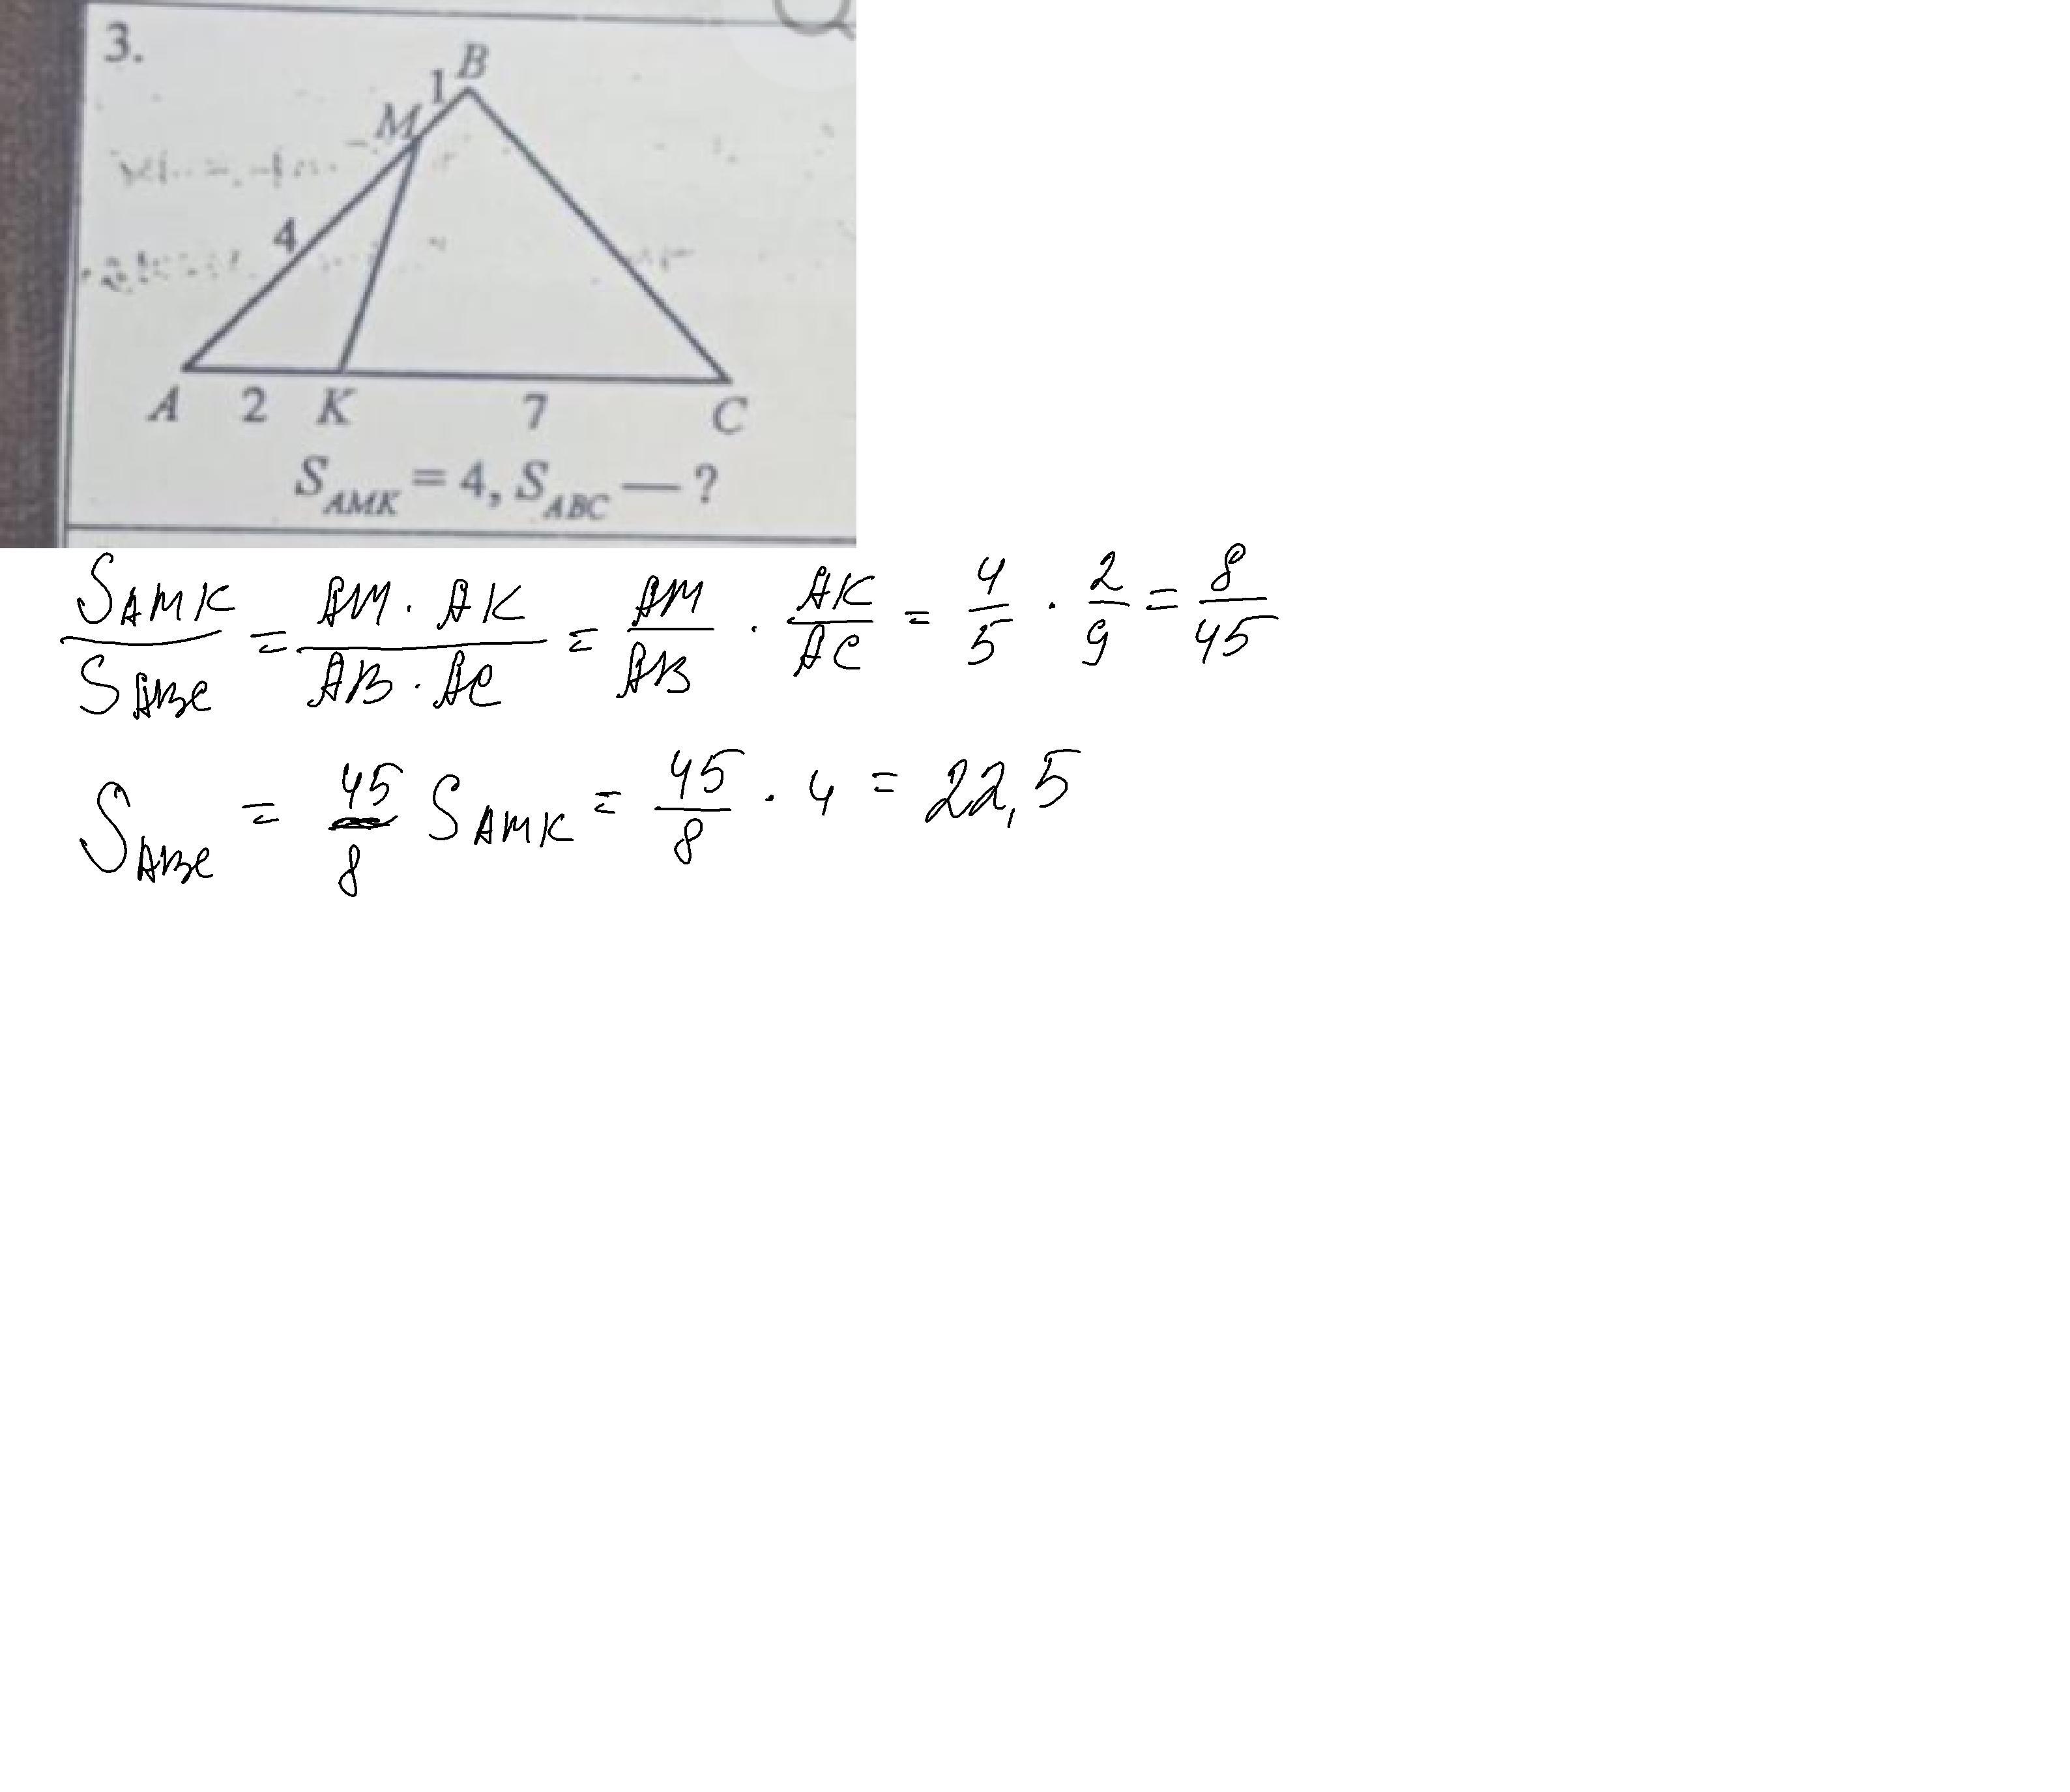 3.
B
1
M
4
A 2 K 7 C
S_AMK = 4, S_ABC — ?
S_AMK / S_ABC = AM · AK / AB · AC = AM / AB · AK / AC = 4/5 · 2/9 = 8/45
S_ABC = 45/8 S_AMK = 45/8 · 4 = 22,5